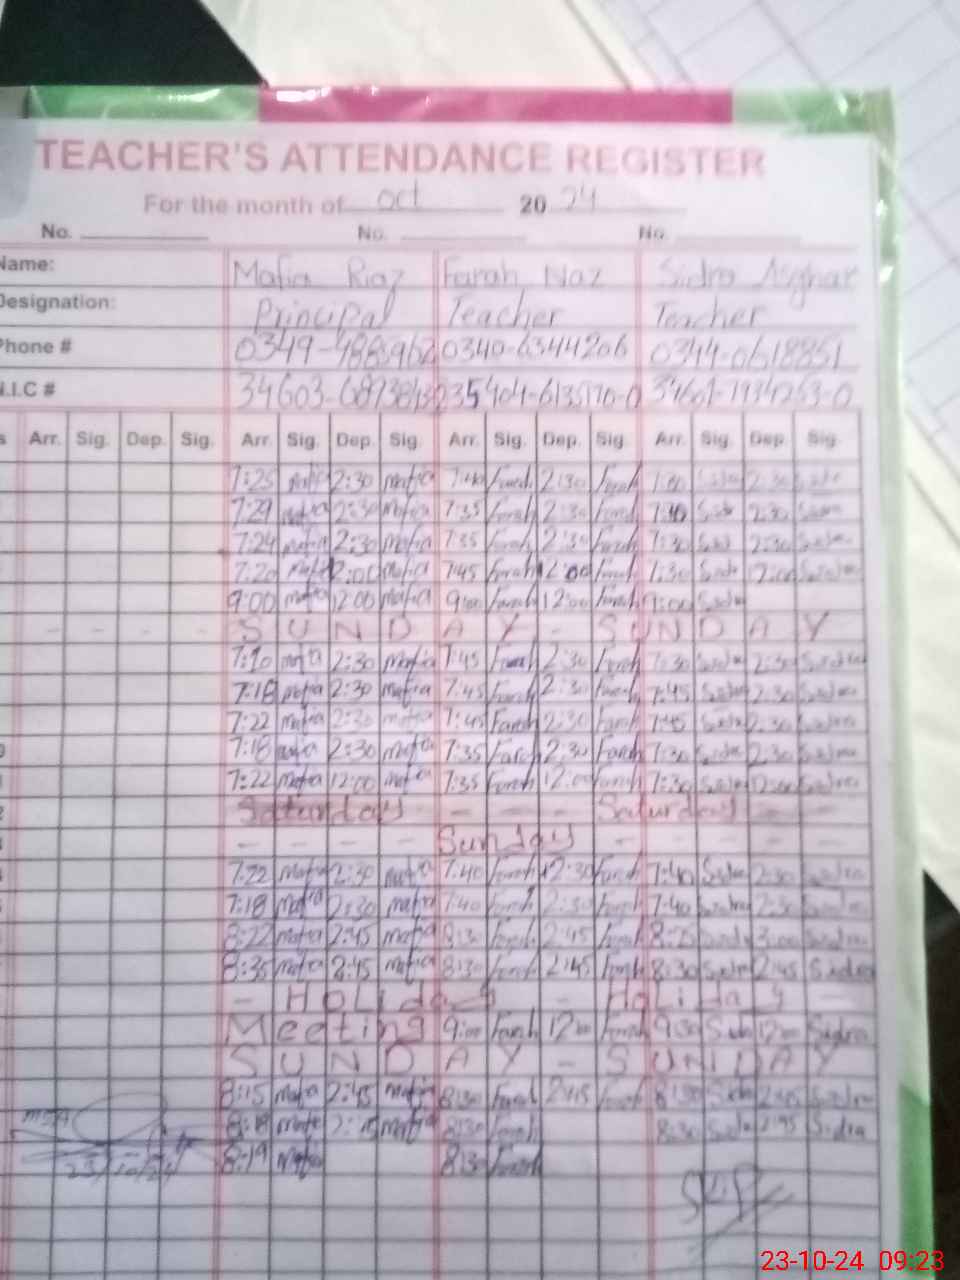 TEACHER'S ATTENDANCE REGISTER
For the month of oct 20 24
No. No. No.
Name: Mafia Riaz Farah Naz Sidra Asghar
Designation: Principal Teacher Teacher
Phone # 0340-6344206 0344-0618851
N.I.C #
Arr. Sig. Dep. Sig. Arr. Sig. Dep. Sig. Arr. Sig. Dep. Sig. Arr. Sig. Dep. Sig.
7:25 Mafia 2:30 Mafia 7:40 Farah 2:30 Farah Sidra 2:30 Sidra
7:29 Mafia 2:30 Mafia 7:35 Farah 2:30 Farah Sidra 2:30 Sidra
7:24 Mafia 2:30 Mafia 7:35 Farah 2:30 Farah 7:30 Sidra 2:30 Sidra
7:20 Mafia 12:00 Mafia 7:45 Farah 12:00 Farah 7:30 Sidra 12:00 Sidra
9:00 Mafia 12:00 Mafia 9:00 Farah 12:00 Farah 9:00 Sidra
- - - - S U N D A Y - S U N D A Y
mafia 2:30 Mafia 7:45 Farah 2:30 Farah 7:30 Sidra 2:30 Sidra
7:18 mafia 2:30 mafia 7:45 Farah 2:30 Farah 7:45 Sidra 2:30 Sidra
7:22 mafia 2:30 mafia 7:45 Farah 2:30 Farah 7:45 Sidra 2:30 Sidra
7:18 mafia 2:30 mafia 7:35 Farah 2:30 Farah 7:30 Sidra 2:30 Sidra
7:22 mafia 12:00 mafia 7:35 Farah 12:00 Farah 7:30 Sidra 12:00 Sidra
Saturday - - - - Saturday - -
- - - - Sunday - - - - -
7:22 Mafia 2:30 mafia 7:40 Farah 2:30 Farah 7:40 Sidra 2:30 Sidra
7:18 Mafia 2:30 mafia 7:40 Farah 2:30 Farah 7:40 Sidra 2:30 Sidra
8:22 mafia 2:45 mafia 8:30 Farah 2:45 Farah 8:25 Sidra 3:00 Sidra
8:35 mafia 2:45 mafia 8:30 Farah 2:45 Farah 8:30 Sidra 2:45 Sidra
- HOLiday - HoLiday -
Meeting 9:00 Farah 12:00 Farah 9:30 Sidra 12:00 Sidra
S U N D A Y - S U N D A Y
8:15 mafia 2:45 mafia 8:30 Farah 2:45 Farah 8:30 Sidra 2:45 Sidra
8:18 mafia 2:45 mafia 8:30 Farah 8:30 Sidra 2:45 Sidra
8:19 Mafia 8:30 Farah
MEA
23/10/24
23-10-24 09:23